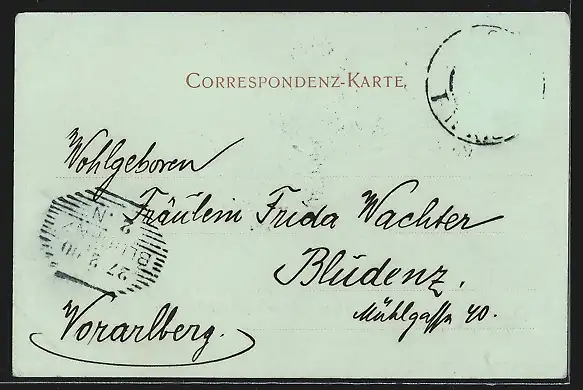 CORRESPONDENZ-KARTE.
Wohlgeboren
Fräulein Frida Wachter
Bludenz.
Mühlgasse 40.
Vorarlberg.
BLUDENZ
27 2 00
2 N